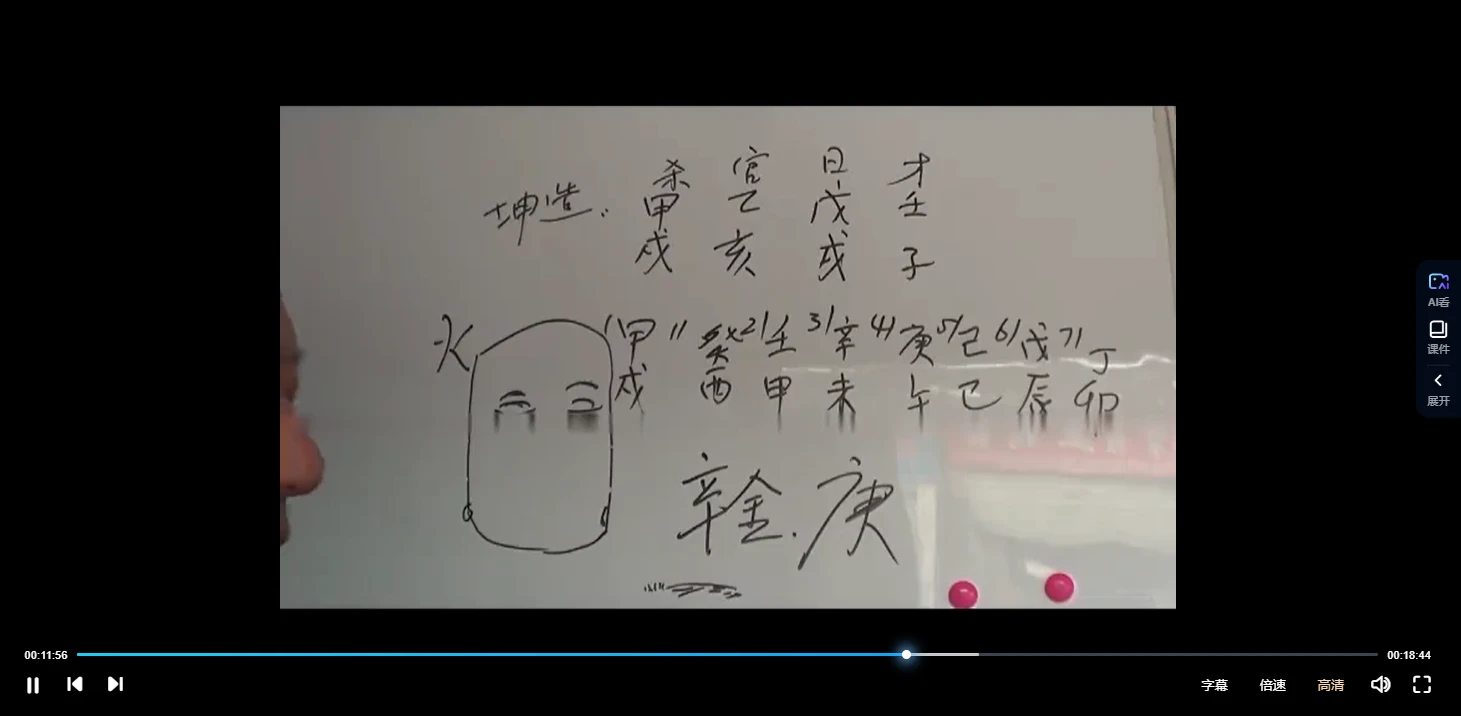 杀 官 日 才
坤造: 甲 乙 戊 壬
戌 亥 戌 子
火
1/ 甲 11 癸 21 壬 31 辛 41 庚 51 己 61 戊 71 丁
戌 酉 申 未 午 巳 辰 卯
辛金.庚
AI看
课件
展开
00:11:56
00:18:44
字幕 倍速 高清